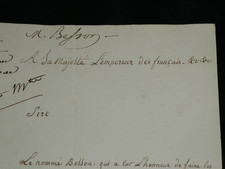 M. Besson
A Sa Majesté L'empereur des français. &c &c
Sire
Le nommé Besson, qui a eu l'honneur de faire les